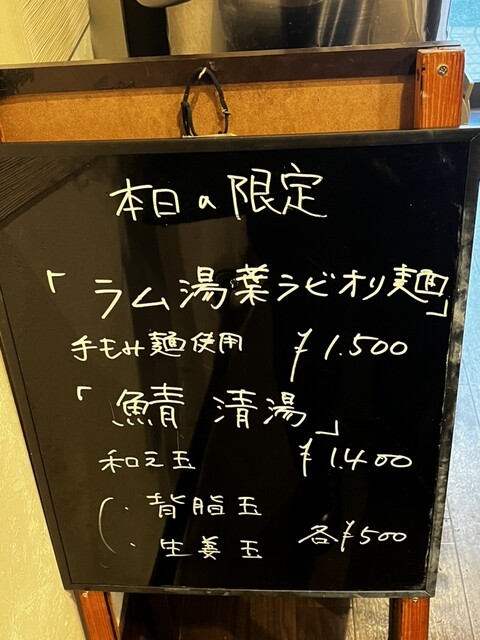 本日の限定
「ラム湯葉ラビオリ麺」
手もみ麺使用 ¥1.500
「鯖清湯」
和え玉 ¥1.400
・背脂玉
・生姜玉 各¥500